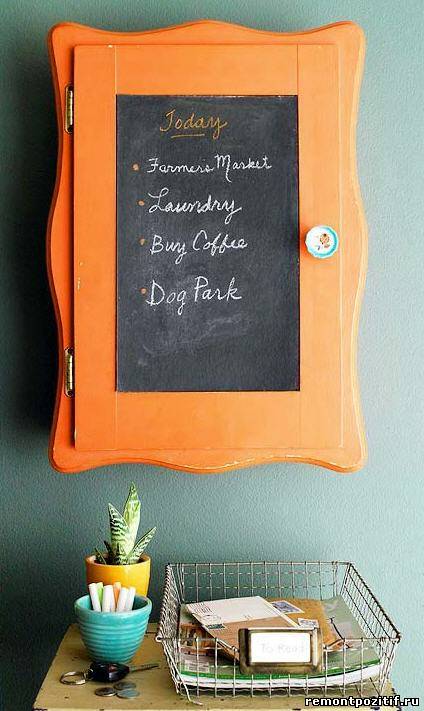 Today
• Farmers Market
• Laundry
• Buy Coffee
• Dog Park
To Read
remontpozitif.ru